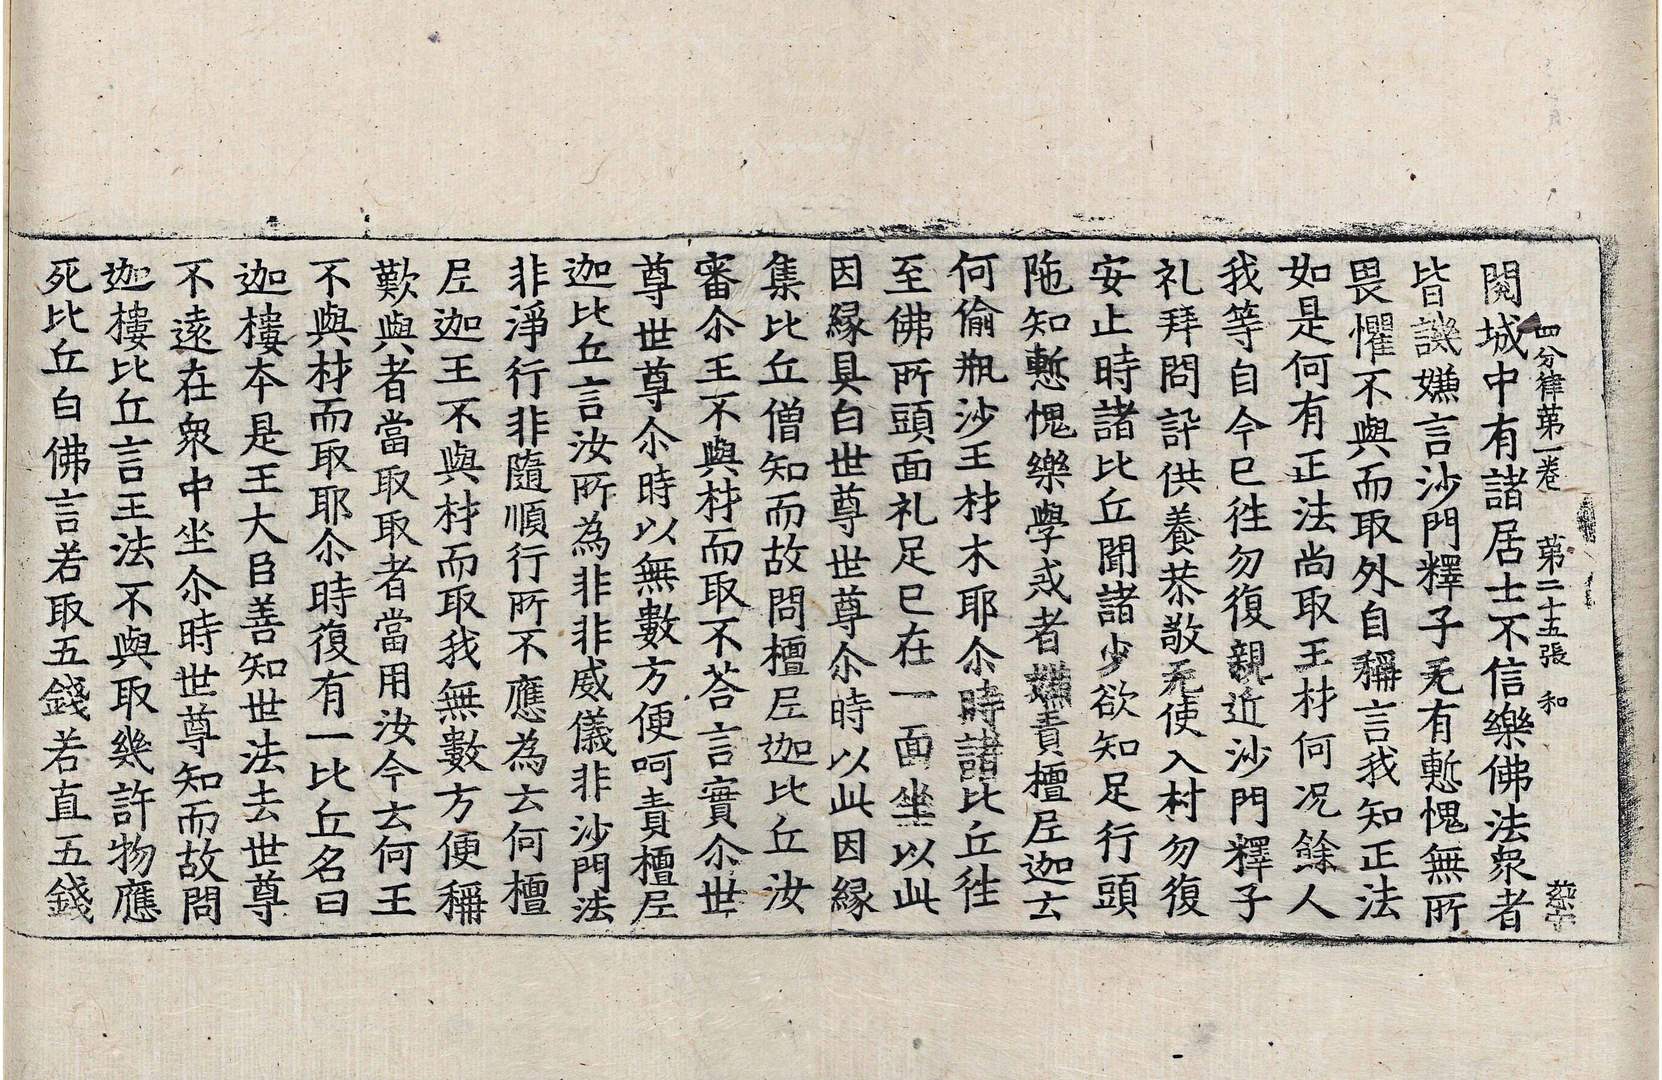 四分律苐一卷 苐二十五張 和
閱城中有諸居士不信樂佛法衆者
皆譏嫌言沙門釋子无有慙愧無所
畏懼不與而取外自稱言我知正法
如是何有正法尚取王材何况餘人
我等自今已徃勿復親近沙門釋子
礼拜問訊供養恭敬无使入村勿復
安止時諸比丘聞諸少欲知足行頭
陁知慙愧樂學戒者嫌責檀尼迦云
何偷瓶沙王材木耶尒時諸比丘徃
至佛所頭面礼足已在一面坐以此
因緣具白世尊世尊尒時以此因緣
集比丘僧知而故問檀尼迦比丘汝
審尒王不與材而取不荅言實尒世
尊世尊尒時以無數方便呵責檀尼
迦比丘言汝所為非非威儀非沙門法
非淨行非隨順行所不應為云何檀
尼迦王不與材而取我無數方便稱
歎與者當取取者當用汝今云何王
不與材而取耶尒時復有一比丘名曰
迦樓本是王大臣善知世法去世尊
不遠在衆中坐尒時世尊知而故問
迦樓比丘言王法不與取幾許物應
死比丘白佛言若取五錢若直五錢